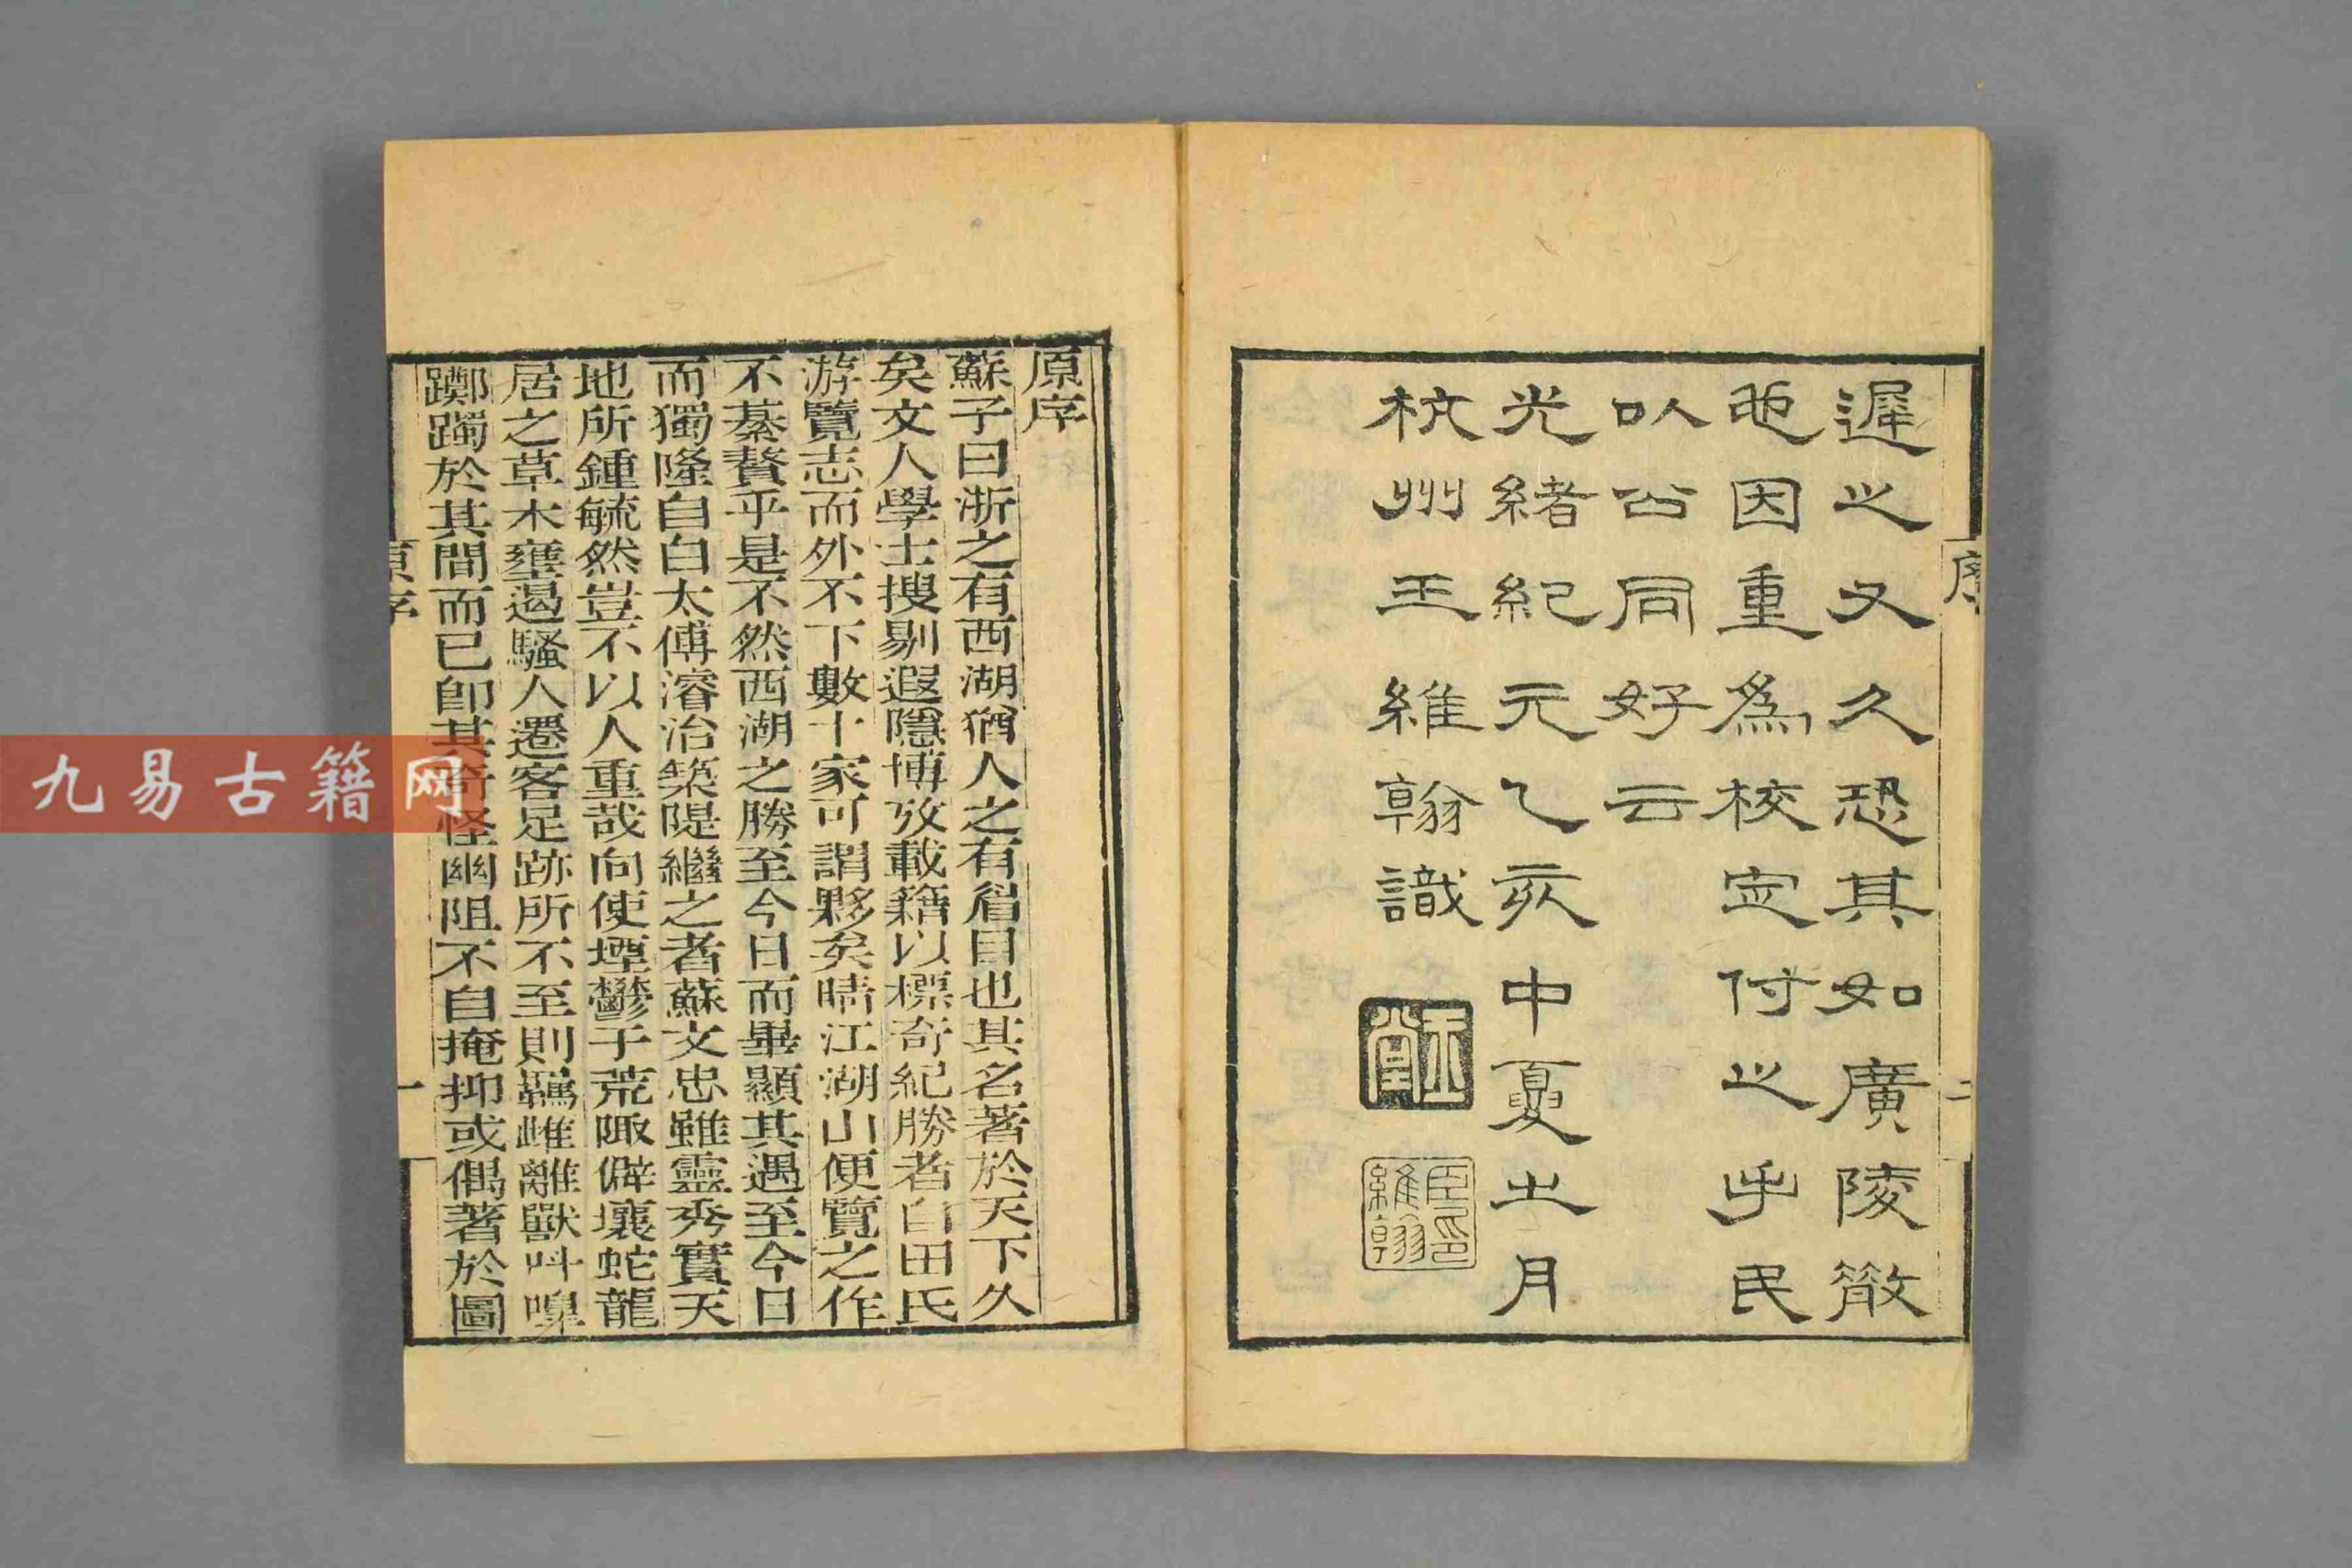 遲之又久恐其如廣陵散
也因重為校定付之手民
以公同好云
光緒紀元乙亥中夏之月
杭州王維翰識
王堂
臣維翰印
序
二
原序
蘇子曰浙之有西湖猶人之有眉目也其名著於天下久
矣文人學士搜剔遐隱博攷載籍以標奇紀勝者自田氏
游覽志而外不下數十家可謂夥矣晴江湖山便覽之作
不綦贅乎是不然西湖之勝至今日而畢顯其遇至今日
而獨隆自白太傅濬治築隄繼之者蘇文忠雖靈秀實天
地所鍾毓然豈不以人重哉向使堙鬱于荒陬僻壤蛇龍
居之草木壅遏騷人遷客足跡所不至則羈雌離獸叫嘷
躑躅於其間而已卽其奇怪幽阻不自掩抑或偶著於圖
原序
一
九易古籍网